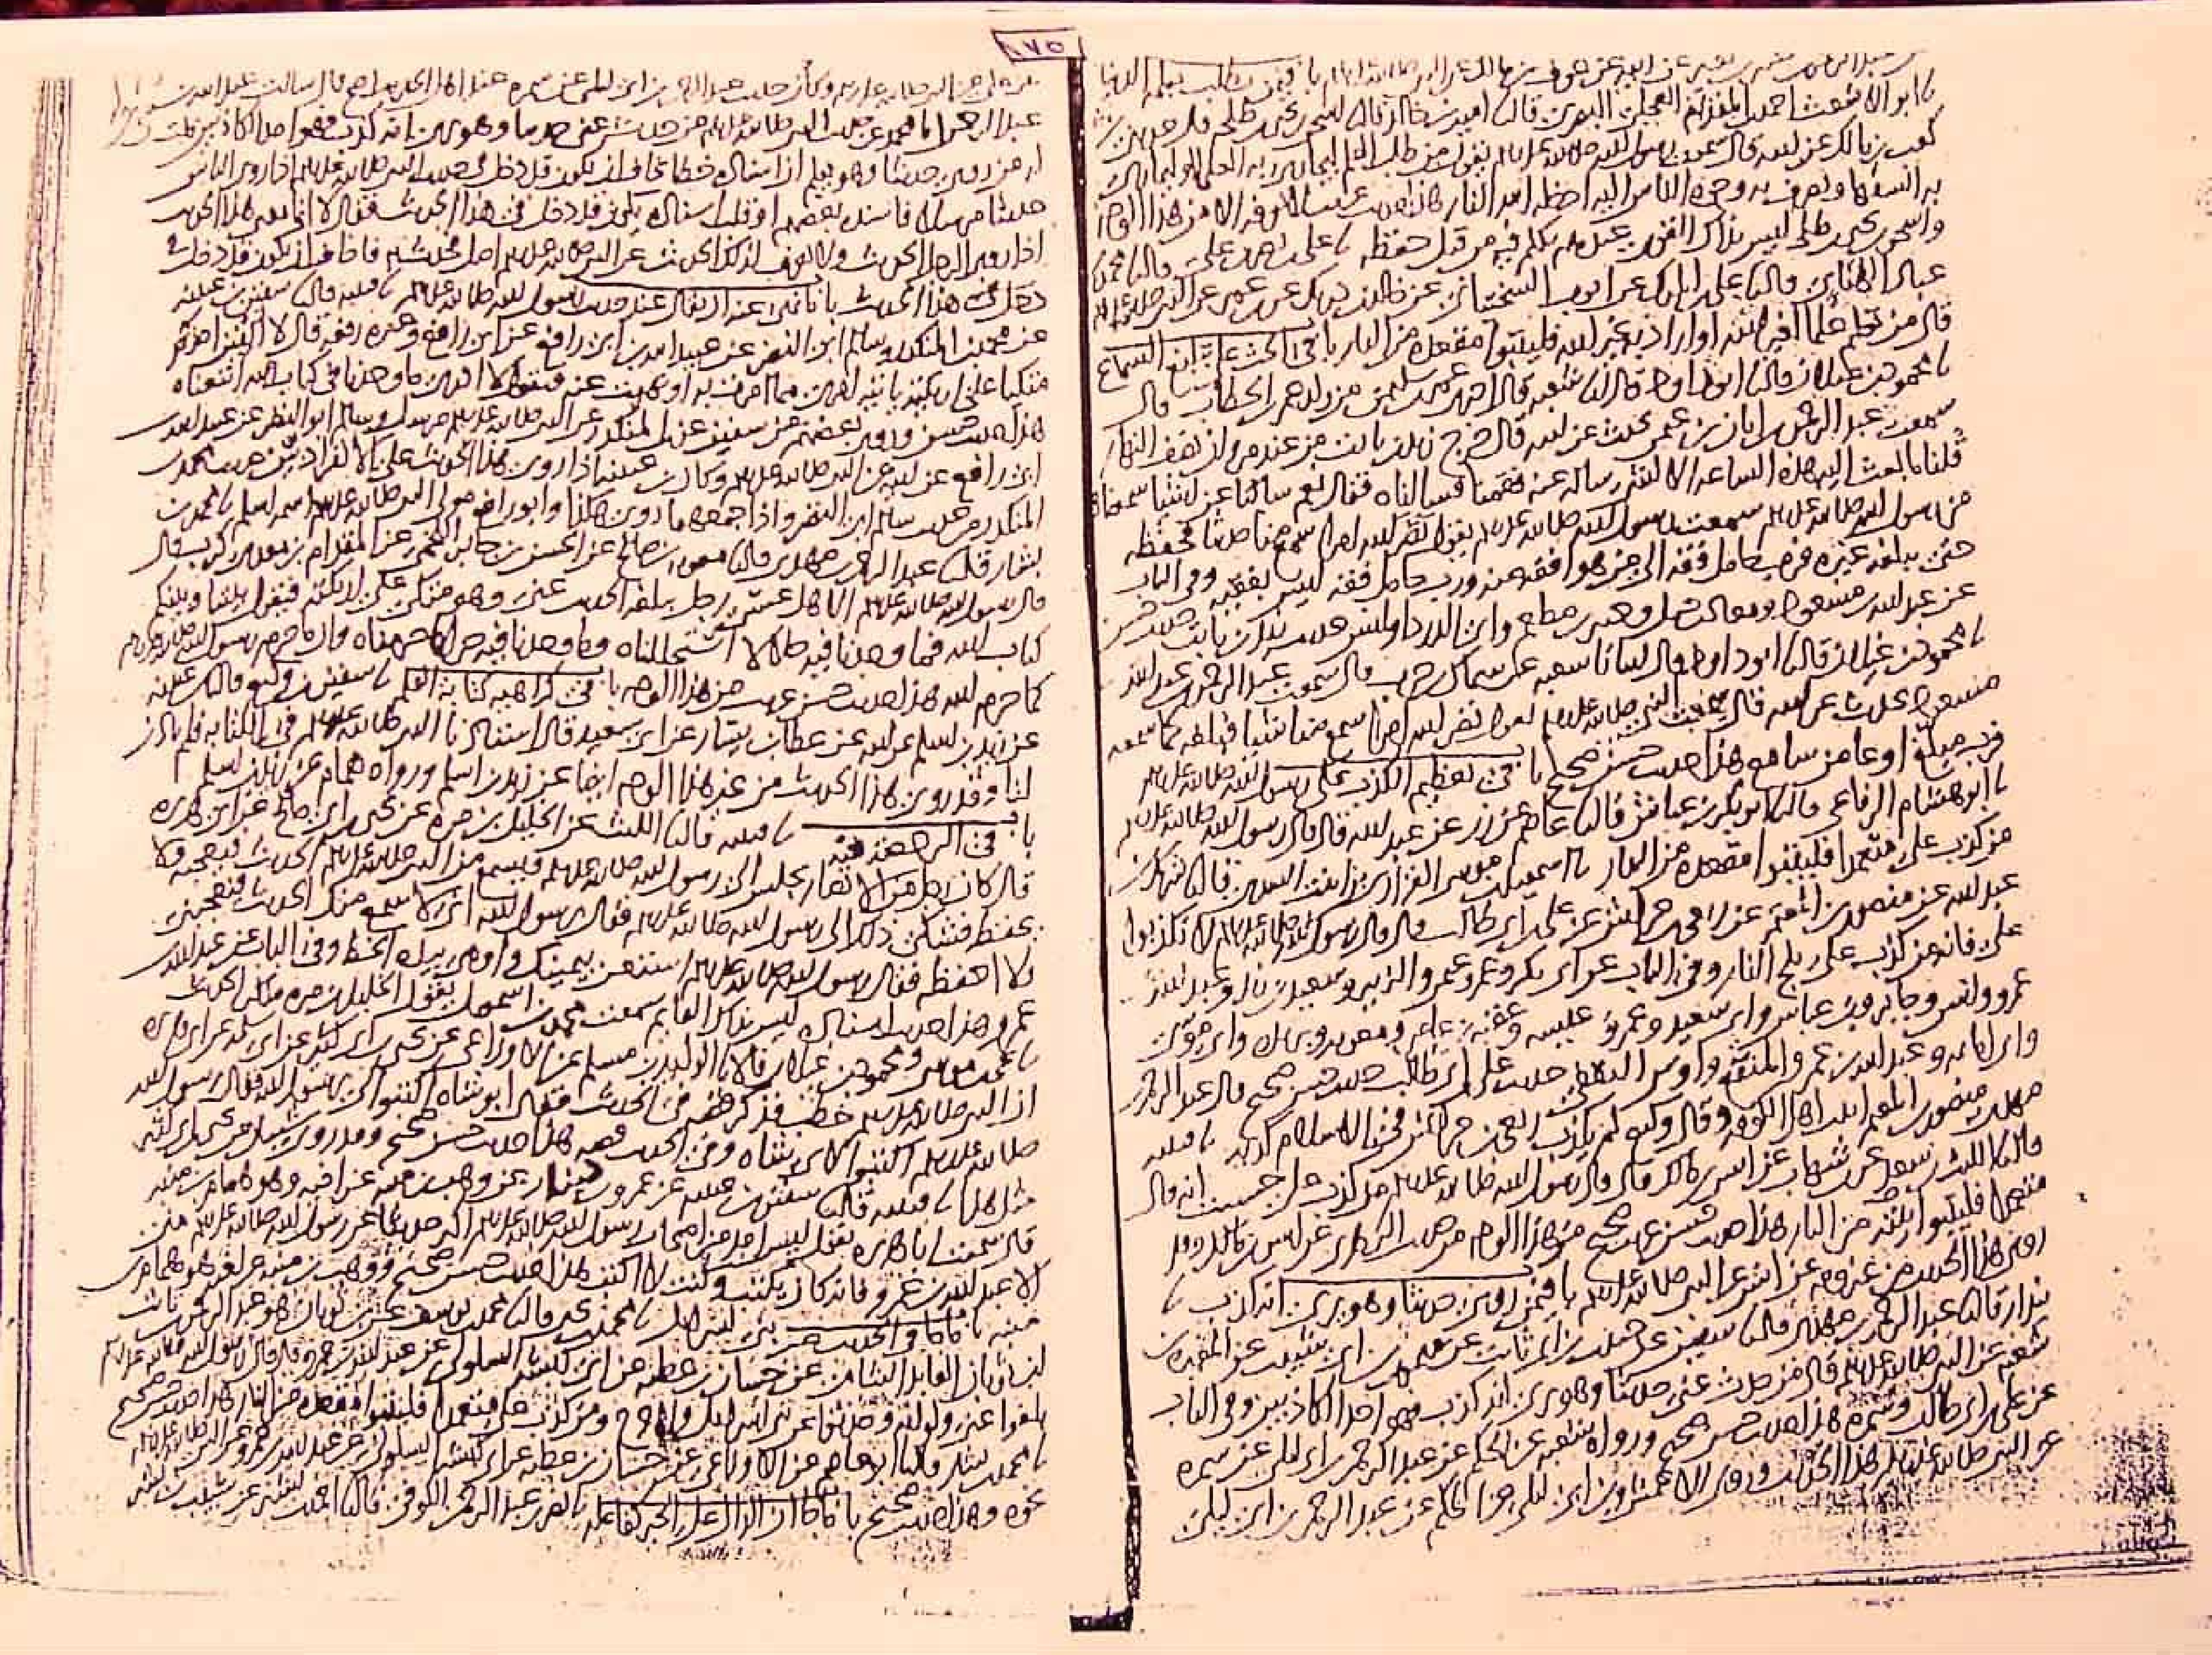 ١٧٥
نا ابو الاشعث احمد بن المقدام العجلي البصري قالنا امية بن خالد قالنا اسحق بن يحيى بن طلحة قال حدثني بن
كعب بن مالك عن ابيه قال سمعت رسول الله صلى الله عليه وسلم يقول من طلب العلم ليجاري به العلماء او ليماري
به السفهاء ويصرف به وجوه الناس اليه ادخله الله النار هذا حديث غريب لا نعرفه الا من هذا الوجه
واسحق بن يحيى بن طلحة ليس بذاك القوي عندهم تكلم فيه من قبل حفظه نا علي بن نصر بن علي قالنا محمد بن
عباد الهنائي قالنا علي بن المبارك عن ايوب السختياني عن خالد بن دريك عن ابن عمر عن النبي صلى الله عليه وسلم
قال من تعلم علما لغير الله او اراد به غير الله فليتبوا مقعده من النار باب في الحث على تبليغ السماع
نا محمود بن غيلان قالنا ابو داود قال انا شعبة قال اخبرني عمر بن سليمن من ولد عمر بن الخطاب قال
سمعت عبد الرحمن بن ابان بن عثمن يحدث عن ابيه قال خرج زيد بن ثابت من عند مروان نصف النهار
قلنا ما بعث اليه هذه الساعة الا لشيء يساله عنه فقمنا فسالناه فقال نعم سالنا عن اشيا سمعناها
من رسول الله صلى الله عليه وسلم سمعت رسول الله صلى الله عليه وسلم يقول نضر الله امرا سمع منا حديثا فحفظه
حتى يبلغه غيره فرب حامل فقه الى من هو افقه منه ورب حامل فقه ليس بفقيه وفي الباب
عن عبد الله بن مسعود ومعاذ بن جبل وجبير بن مطعم وابي الدرداء وانس حديث زيد بن ثابت حديث حسن
نا محمود بن غيلان قالنا ابو داود قال انبانا شعبة عن سماك بن حرب قال سمعت عبد الرحمن بن عبد الله
بن مسعود يحدث عن ابيه قال سمعت النبي صلى الله عليه وسلم يقول نضر الله امرا سمع منا شيئا فبلغه كما سمعه
فرب مبلغ اوعا من سامع هذا حديث حسن صحيح باب في تعظيم الكذب على رسول الله صلى الله عليه وسلم
نا ابو هشام الرفاعي قالنا ابو بكر بن عياش قالنا عاصم عن زر عن عبد الله قال قال رسول الله صلى الله عليه وسلم
من كذب علي متعمدا فليتبوا مقعده من النار نا اسمعيل بن موسى الفزاري بن ابنة السدي قالنا شريك بن
عبد الله عن منصور بن المعتمر عن ربعي بن حراش عن علي بن ابي طالب قال قال رسول الله صلى الله عليه وسلم لا تكذبوا
علي فانه من كذب علي يلج النار وفي الباب عن ابي بكر وعمر وعثمن والزبير وسعيد بن زيد وعبد الله بن
عمرو وانس وجابر وابن عباس وابي سعيد وعمرو بن عبسة وعقبة بن عامر ومعوية وبريدة وابي موسى
وابي امامة وعبد الله بن عمر والمنقع واوس الثقفي حديث علي بن ابي طالب حديث حسن صحيح قال عبد الرحمن
مهدي منصور بن المعتمر اثبت اهل الكوفة وقال وكيع لم يكذب ربعي بن حراش في الاسلام كذبة نا قتيبة
قالنا الليث بن سعد عن بن شهاب عن انس بن مالك قال قال رسول الله صلى الله عليه وسلم من كذب علي حسبت انه قال
متعمدا فليتبوا بيته من النار هذا حديث حسن غريب صحيح من هذا الوجه من حديث الزهري عن انس بن مالك وقد
روي هذا الحديث من غير وجه عن انس عن النبي صلى الله عليه وسلم باب فيمن روى حديثا وهو يرى انه كذب نا
بندار قالنا عبد الرحمن بن مهدي قالنا سفين عن حبيب بن ابي ثابت عن ميمون بن ابي شبيب عن المغيرة بن
شعبة عن النبي صلى الله عليه وسلم قال من حدث عني حديثا وهو يرى انه كذب فهو احد الكاذبين وفي الباب
عن علي بن ابي طالب وسمرة هذا حديث حسن صحيح ورواه شعبة عن الحكم عن عبد الرحمن بن ابي ليلى عن سمرة
عن النبي صلى الله عليه وسلم هذا الحديث وروى الاعمش وبن ابي ليلى عن الحكم عن عبد الرحمن بن ابي ليلى
عن علي عن النبي صلى الله عليه وسلم وكان حديث عبد الرحمن بن ابي ليلى عن سمرة عند اهل الحديث اصح قال سالت عبد الله بن
عبد الرحمن ابا محمد عن حديث النبي صلى الله عليه وسلم من حدث عني حديثا وهو يرى انه كذب فهو احد الكاذبين قلت
له من روى حديثا وهو يعلم ان اسناده خطا يخاف ان يكون قد دخل في حديث النبي صلى الله عليه وسلم او اذا روى الناس
حديثا مرسلا فاسنده بعضهم او قلب اسناده يكون قد دخل في هذا الحديث فقال لا انما معنى هذا الحديث
اذا روى الرجل الحديث ولا يعرف لذلك الحديث عن النبي صلى الله عليه وسلم اصل فحدث به فاخاف ان يكون قد دخل في
هذا الحديث باب ما نهي عنه ان يقال عند حديث رسول الله صلى الله عليه وسلم نا قتيبة قالنا سفين بن عيينة
عن محمد بن المنكدر وسالم ابي النضر عن عبيد الله بن ابي رافع عن ابي رافع وغيره رفعه قال لا الفين احدكم
متكيا على اريكته ياتيه امر مما امرت به او نهيت عنه فيقول لا ادري ما وجدنا في كتاب الله اتبعناه
هذا حديث حسن وروى بعضهم عن سفين عن بن المنكدر عن النبي صلى الله عليه وسلم مرسل وسالم ابو النضر عن عبيد الله بن
ابي رافع عن ابيه عن النبي صلى الله عليه وسلم وكان بن عيينة اذا روى هذا الحديث على الانفراد بين حديث محمد بن
المنكدر من حديث سالم ابي النضر واذا جمعهما روى هكذا وابو رافع مولى النبي صلى الله عليه وسلم اسمه اسلم نا محمد بن
بشار قالنا عبد الرحمن بن مهدي قالنا معوية بن صالح عن الحسن بن جابر اللخمي عن المقدام بن معدي كرب قال
قال رسول الله صلى الله عليه وسلم الا هل عسى رجل يبلغه الحديث عني وهو متكي على اريكته فيقول بيننا وبينكم
كتاب الله فما وجدنا فيه حلالا استحللناه وما وجدنا فيه حراما حرمناه وان ما حرم رسول الله صلى الله عليه وسلم
كما حرم الله هذا حديث حسن غريب من هذا الوجه باب في كراهية كتابة العلم نا سفين بن وكيع قالنا بن عيينة
عن زيد بن اسلم عن ابيه عن عطا بن يسار عن ابي سعيد قال استاذنا النبي صلى الله عليه وسلم في الكتابة فلم ياذن
لنا وقد روي هذا الحديث من غير هذا الوجه ايضا عن زيد بن اسلم ورواه همام عن زيد بن اسلم
باب في الرخصة فيه نا قتيبة قالنا الليث عن الخليل بن مرة عن يحيى بن ابي صالح عن ابي هريرة
قال كان رجل من الانصار يجلس الى رسول الله صلى الله عليه وسلم فيسمع من النبي صلى الله عليه وسلم الحديث فيعجبه ولا
يحفظه فشكى ذلك الى رسول الله صلى الله عليه وسلم فقال يا رسول الله اني لاسمع منك الحديث فيعجبني
ولا احفظه فقال رسول الله صلى الله عليه وسلم استعن بيمينك واومى بيده الخط وفي الباب عن عبد الله بن
عمرو هذا حديث اسناده ليس بذاك القايم سمعت محمد بن اسمعيل يقول الخليل بن مرة منكر الحديث
نا يحيى بن موسى ومحمود بن غيلان قالا نا الوليد بن مسلم عن الاوزاعي عن يحيى بن ابي كثير عن ابي سلمة عن ابي هريرة
ان النبي صلى الله عليه وسلم خطب فذكر قصة في الحديث فقال ابو شاه اكتبوا لي يا رسول الله فقال رسول الله
صلى الله عليه وسلم اكتبوا لابي شاه وفي الحديث قصة هذا حديث حسن صحيح وقد روى شيبان عن يحيى بن ابي كثير
مثل هذا نا قتيبة قالنا سفين بن عيينة عن عمرو بن دينار عن وهب بن منبه عن اخيه وهو همام بن منبه
قال سمعت ابا هريرة يقول ليس احد من اصحاب رسول الله صلى الله عليه وسلم اكثر حديثا عن رسول الله صلى الله عليه وسلم مني
الا عبد الله بن عمرو فانه كان يكتب وكنت لا اكتب هذا حديث حسن صحيح ووهب بن منبه عن اخيه هو همام بن
منبه باب ما جا في الحديث عن بني اسرائل نا محمد بن يحيى قالنا محمد بن يوسف عن بن ثوبان هو عبد الرحمن بن ثابت
بن ثوبان العابد الشامي عن حسان بن عطية عن ابي كبشة السلولي عن عبد الله بن عمرو قال قال رسول الله صلى الله عليه وسلم
بلغوا عني ولو اية وحدثوا عن بني اسرائل ولا حرج ومن كذب علي متعمدا فليتبوا مقعده من النار هذا حديث حسن صحيح
نا محمد بن بشار قالنا ابو عاصم عن الاوزاعي عن حسان بن عطية عن ابي كبشة السلولي عن عبد الله بن عمرو عن النبي صلى الله عليه وسلم
نحوه وهذا حديث صحيح باب ما جا ان الدال على الخير كفاعله نا نصر بن عبد الرحمن الكوفي قالنا احمد بن بشير عن شبيب بن بشر